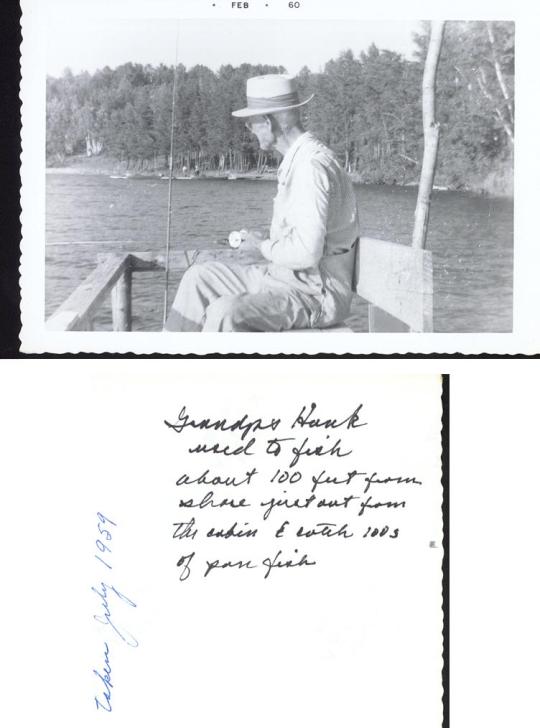 • FEB • 60
Grandpa Hank
used to fish
about 100 feet from
shore just out from
the cabin & catch 100s
of pan fish
taken July 1959